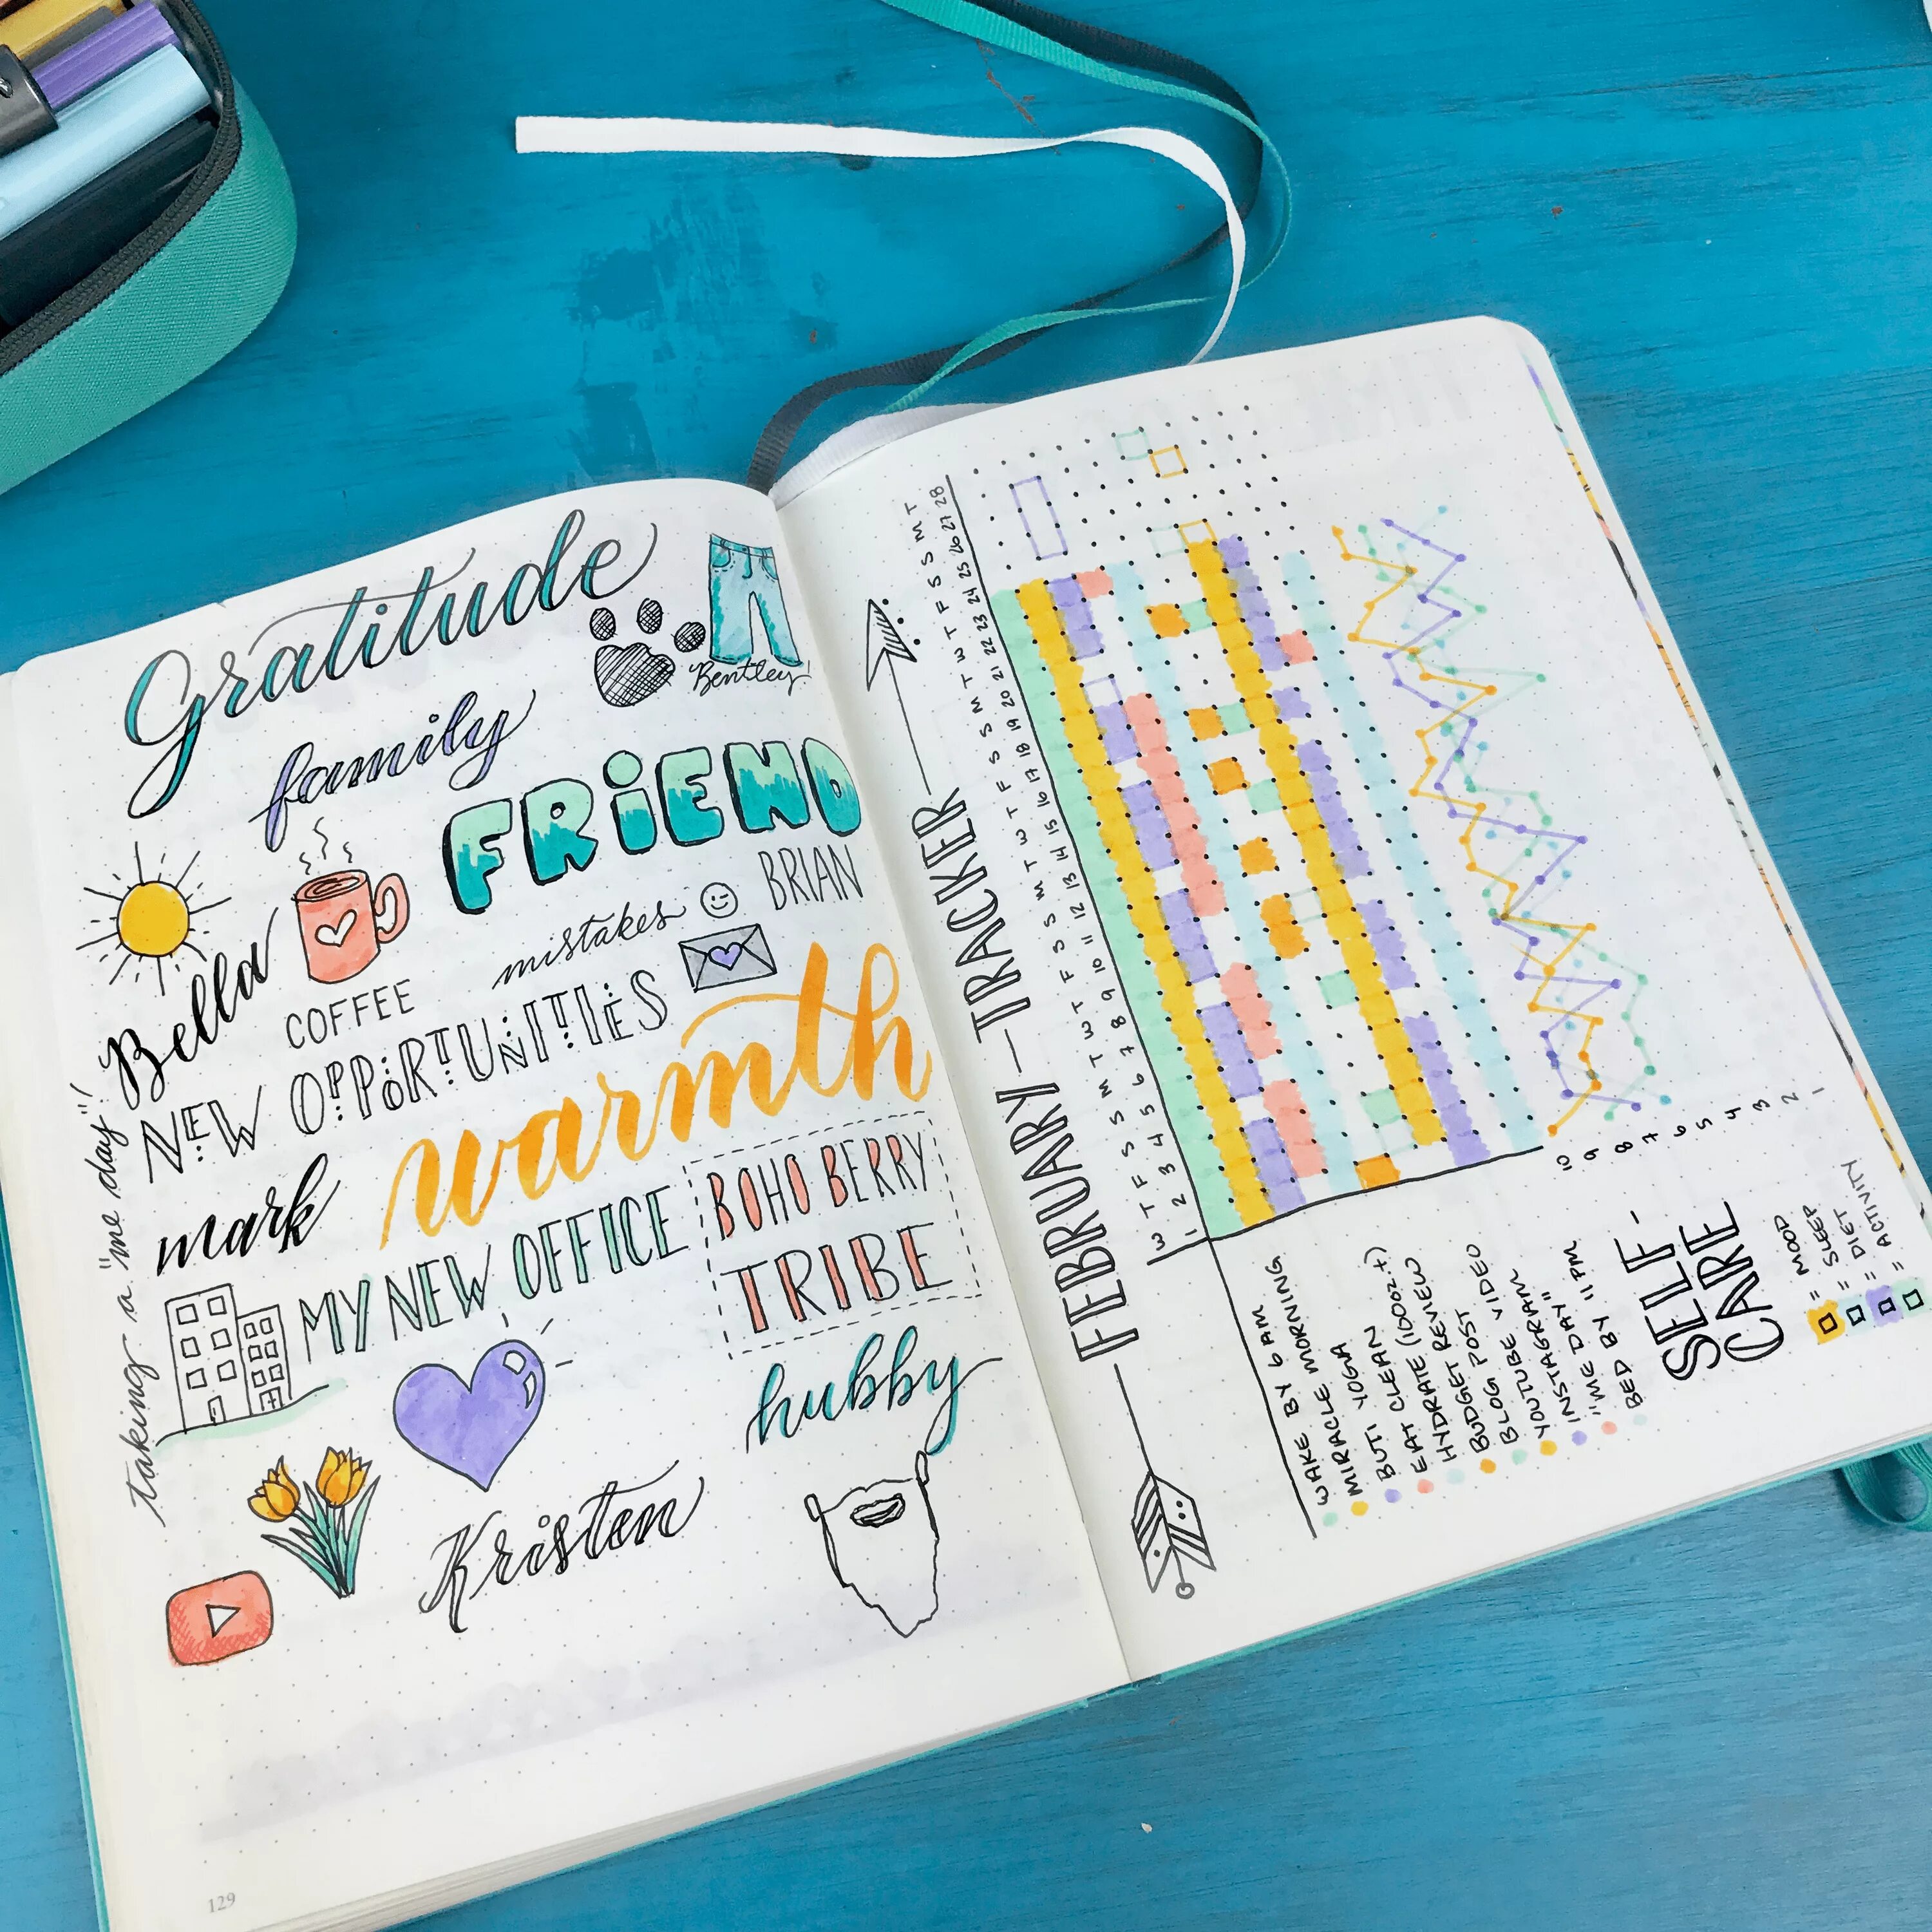 Gratitude
Bentley!
family
FRiEND
BRIAN
mistakes
Bella
COFFEE
NEW OPPORTUNITIES
warmth
taking a "me day"!
mark
MY NEW OFFICE
BOHO BERRY
TRIBE
hubby
Kristen
129
FEBRUARY - TRACKER
W T F S S M T W T F S S M T W T F S S M T W T F S S M T
1 2 3 4 5 6 7 8 9 10 11 12 13 14 15 16 17 18 19 20 21 22 23 24 25 26 27 28
WAKE BY 6AM
MIRACLE MORNING
BUTI YOGA
EAT CLEAN
HYDRATE (100oz.+)
BUDGET REVIEW
BLOG POST
YOUTUBE VIDEO
INSTAGRAM
"ME DAY"
BED BY 11PM
SELF-
CARE
10
9
8
7
6
5
4
3
2
1
= MOOD
= SLEEP
= DIET
= ACTIVITY